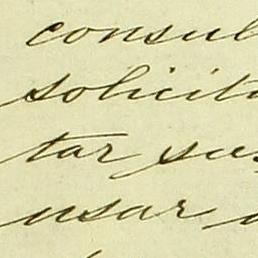 consul
solicita
tar sus
usar